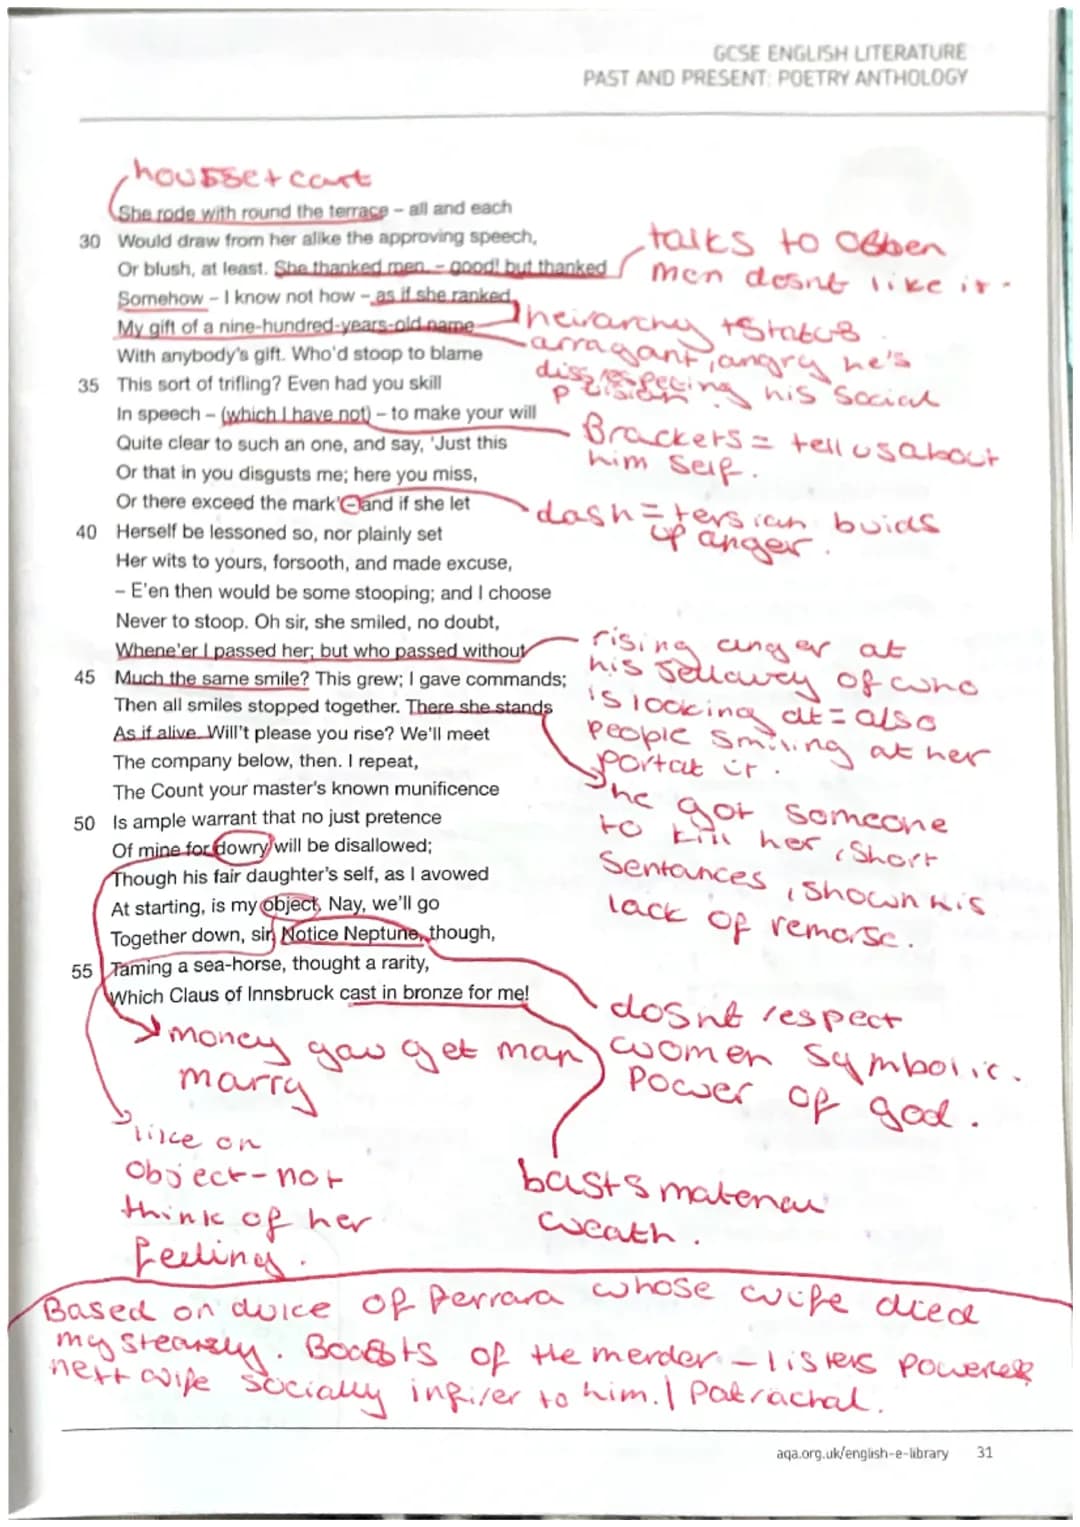 GCSE ENGLISH LITERATURE
PAST AND PRESENT: POETRY ANTHOLOGY
housset cart
She rode with round the terrace – all and each
30 Would draw from her alike the approving speech,
Or blush, at least. She thanked men, – good! but thanked
Somehow – I know not how – as if she ranked
My gift of a nine-hundred-years-old name
With anybody's gift. Who'd stoop to blame
35 This sort of trifling? Even had you skill
In speech – (which I have not) – to make your will
Quite clear to such an one, and say, 'Just this
Or that in you disgusts me; here you miss,
Or there exceed the mark' – and if she let
40 Herself be lessoned so, nor plainly set
Her wits to yours, forsooth, and made excuse,
– E'en then would be some stooping; and I choose
Never to stoop. Oh sir, she smiled, no doubt,
Whene'er I passed her; but who passed without
45 Much the same smile? This grew; I gave commands;
Then all smiles stopped together. There she stands
As if alive. Will't please you rise? We'll meet
The company below, then. I repeat,
The Count your master's known munificence
50 Is ample warrant that no just pretence
Of mine for dowry will be disallowed;
Though his fair daughter's self, as I avowed
At starting, is my object. Nay, we'll go
Together down, sir. Notice Neptune, though,
55 Taming a sea-horse, thought a rarity,
Which Claus of Innsbruck cast in bronze for me!
talks to
men dosnt like it.
heirarchy + status
arragant, angry he's
dissrespecting his social
Brackets = tell us about
him self.
dash = builds
up anger.
rising anger at
his of who
is looking at = also
people smiling at her
portat it.
he got someone
to kill her, short
sentances, shown his
lack of remorse.
dosnt respect
women symbolic.
power of god.
money get man
marry
like on
object - not
think of her
feeling.
basts
weath.
Based on duice of ferrara whose wife died
. Boasts of the merder – powere
next wife socially to him. | Patrachal.
aqa.org.uk/english-e-library 31